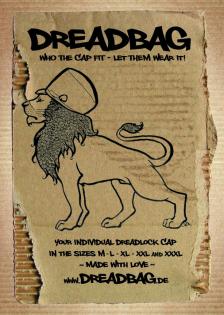 DREADBAG
WHO THE CAP FIT - LET THEM WEAR IT!
YOUR INDIVIDUAL DREADLOCK CAP
IN THE SIZES M - L - XL - XXL AND XXXL
- MADE WITH LOVE -
WWW.DREADBAG.DE